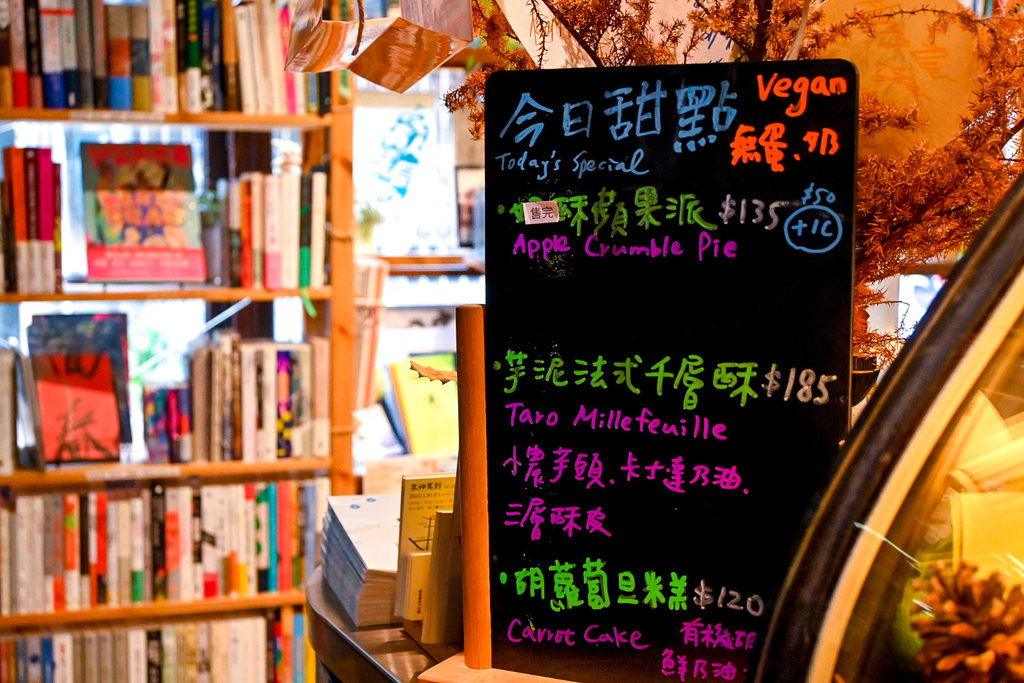 今日甜點
Vegan
無蛋.奶
Today's Special
售完
酥蘋果派 $135
$50
+1C
Apple Crumble Pie
芋泥法式千層酥 $185
Taro Millefeuille
濃芋頭、卡士達乃油、
三層酥皮
胡蘿蔔旦糕 $120
Carrot Cake
有機
鮮乃油